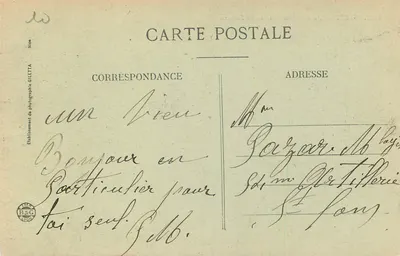 10
CARTE POSTALE
CORRESPONDANCE
ADRESSE
Etablissement de photographie GILETTA Nice
un vieu
Bonjour en
particulier pour
toi seul.
GM.
Mon
Lazar M
Artillerie
St Fons